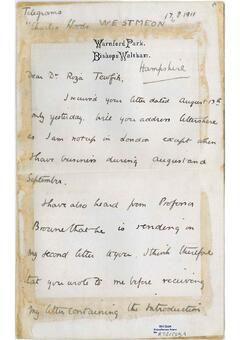 Telegrams
"Charles Woods WESTMEON
17, 9 1911
Warnford Park,
Bishops Waltham.
Hampshire
Dear Dr Riza Tewfik,
I received your letter dated August 13th
only yesterday. Will you address letters here
as I am not up in London except when
I have business during August and
September.
I have also heard from Professor
Browne that he is sending on
my second letter to you. I think therefore
that you wrote to me before receiving
my letter containing the Introduction